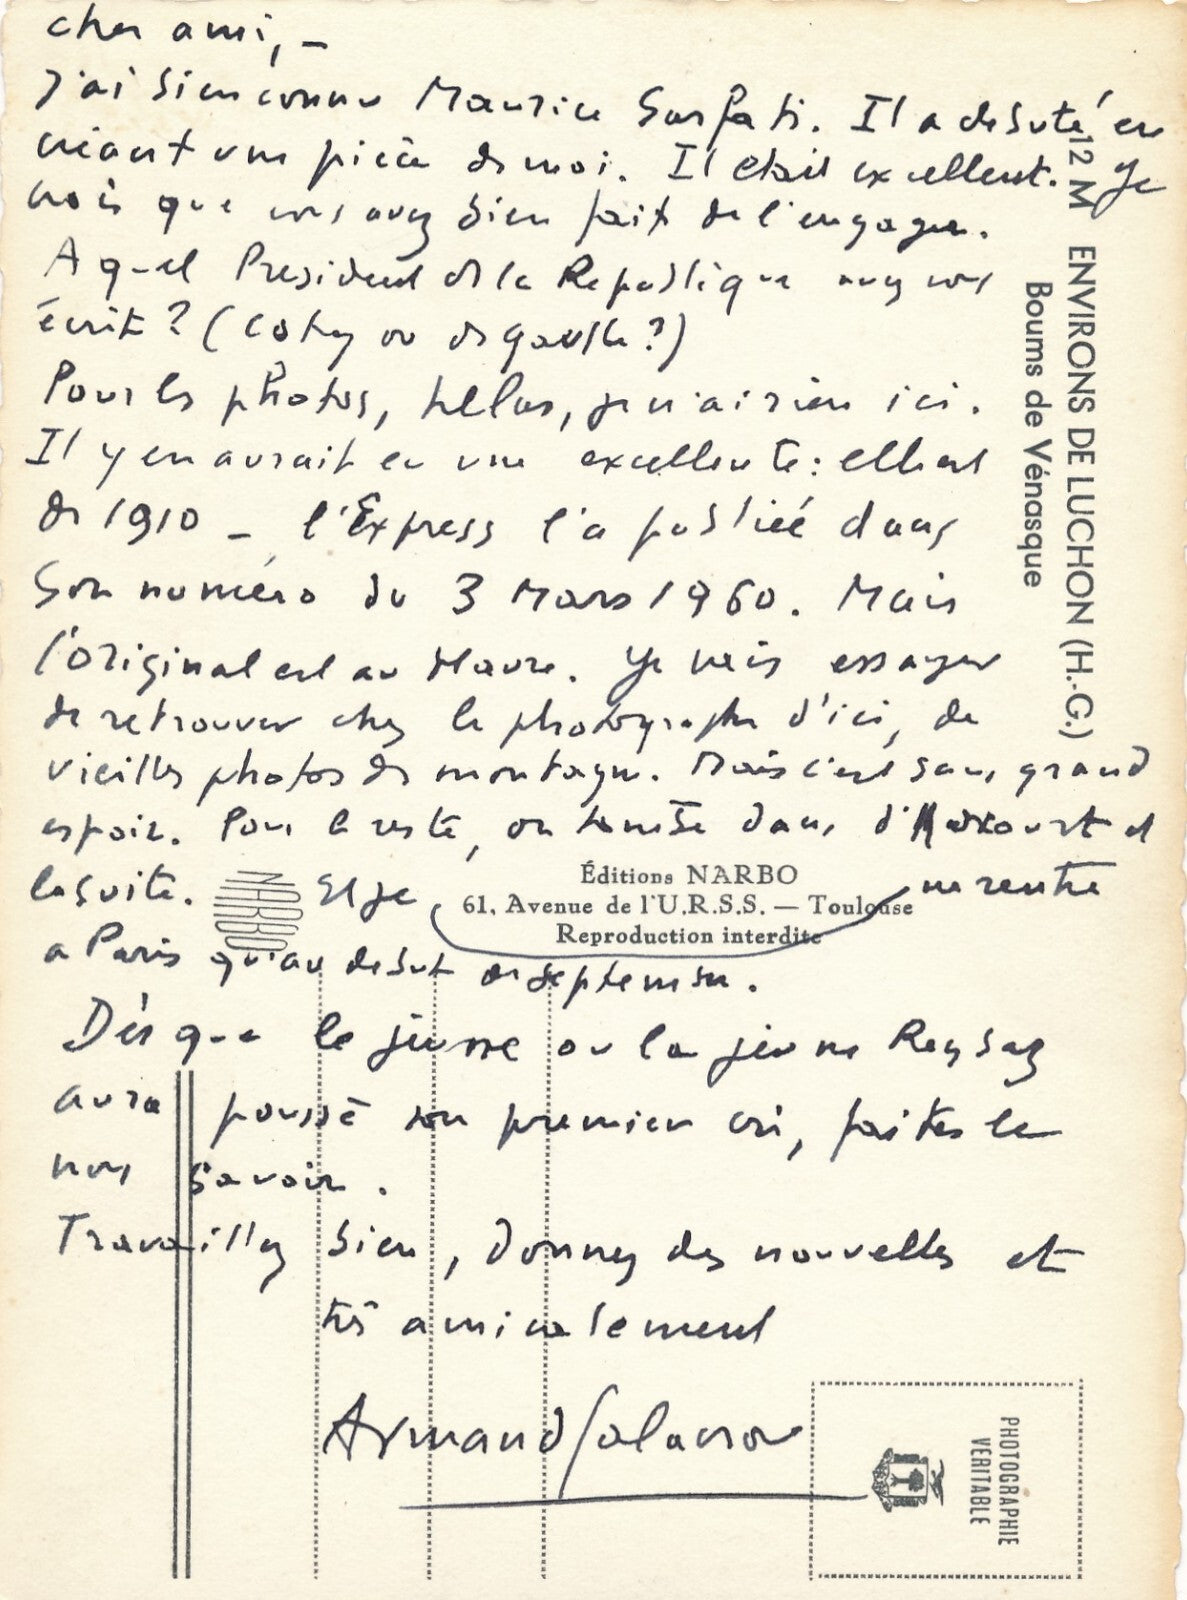 cher ami, –
J'ai bien connu Maurice Sarfati. Il a débuté en
créant une pièce de moi. Il était excellent. Je
crois que vous avez bien fait de l'engager.
A quel Président de la République avez vous
écrit ? (Coty ou de gaulle ?)
Pour les photos, hélas, je n'ai rien ici.
Il y en aurait eu une excellente : elle est
de 1910 – l'Express l'a publiée dans
son numéro du 3 Mars 1960. Mais
l'original est au Havre. Je vais essayer
de retrouver chez le photographe d'ici, de
vieilles photos de montagne. Mais c'est sans grand
espoir. Pour le reste, on tombe dans d'Harcourt et
la suite. Et je ne rentre
a Paris qu'au debut de septembre.
Dès que le jeune ou la jeune Reybaz
aura poussé son premier cri, faites le
nous savoir.
Travaillez bien, donnez des nouvelles et
très amicalement
Armand Salacrou
12 M ENVIRONS DE LUCHON (H.-G.)
Boums de Vénasque
NARBO
Éditions NARBO
61, Avenue de l'U.R.S.S. — Toulouse
Reproduction interdite
PHOTOGRAPHIE
VERITABLE